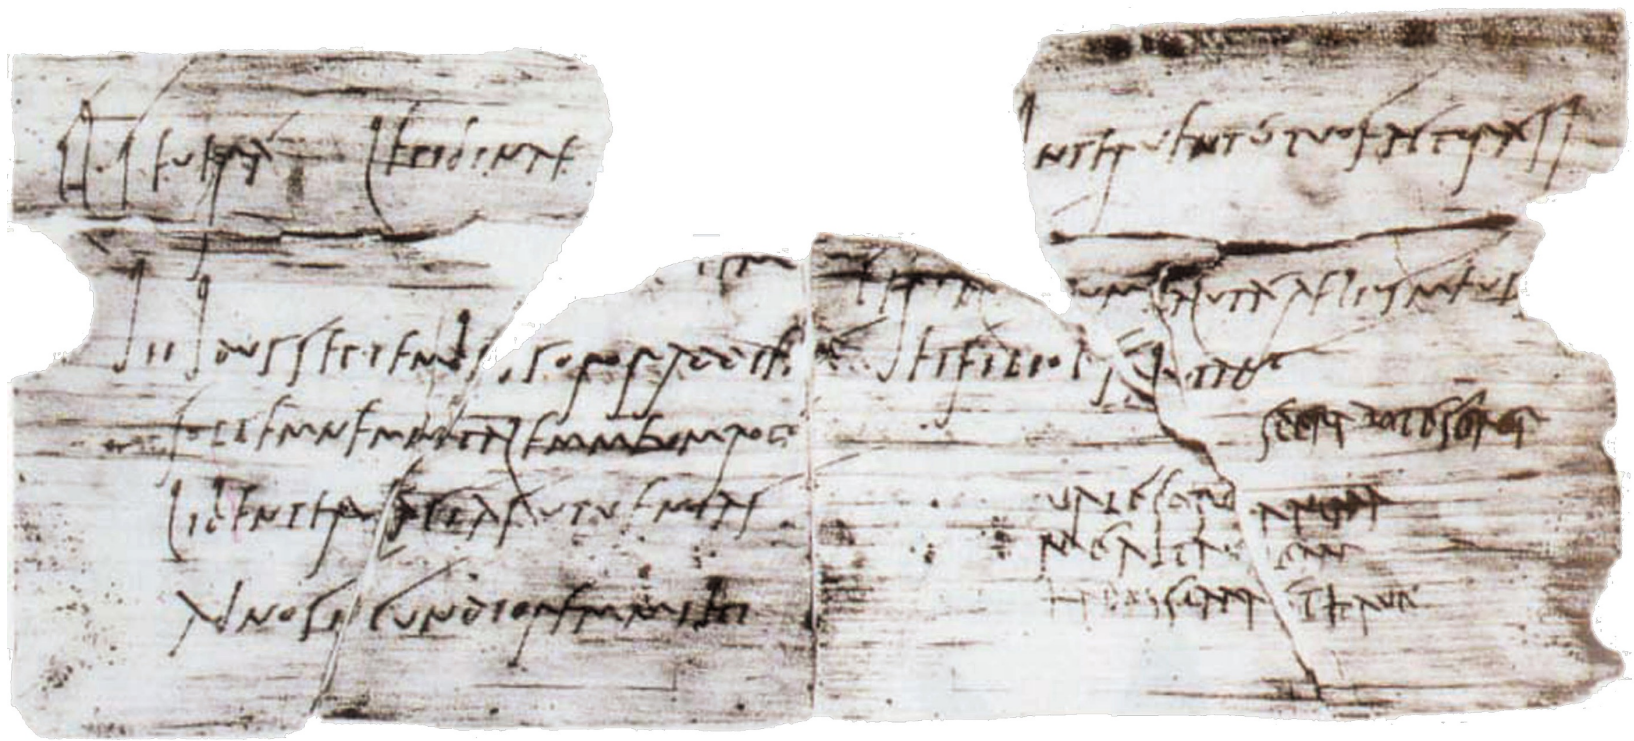 Cl Seuerá Lepidinae
tem
iii Idus Septembres soror ad diem
sollemnem natalem meum rogó
libenter faciás ut uenias
ad nos iucundiorem mihi
interuentú tuo facturá si
Cerial uum salutá Aelius meus
et filiolus salutant
sperabo te soror
uale soror anima
mea ita ualeam
karissima et haue